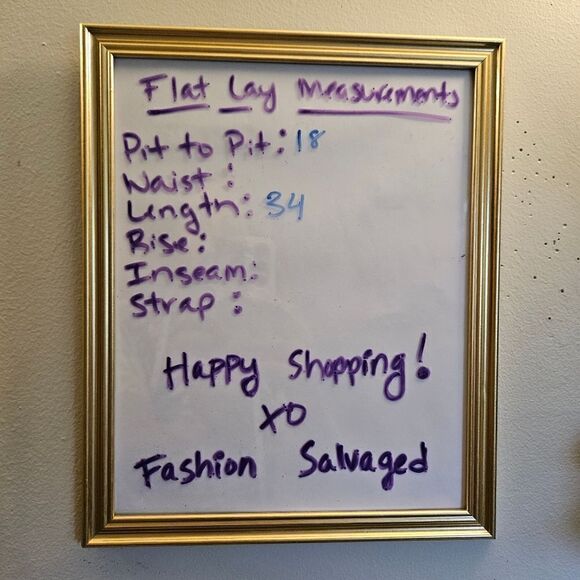 Flat Lay Measurements
Pit to Pit: 18
Waist:
Length: 34
Rise:
Inseam:
Strap:
Happy Shopping!
XO
Fashion Salvaged